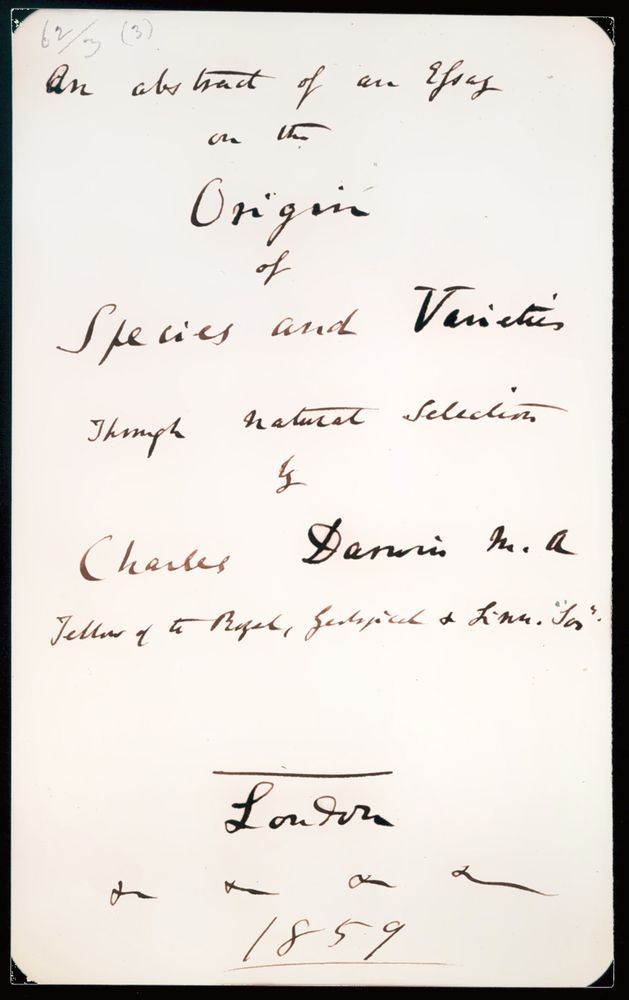 62/3 (3)
An abstract of an Essay
on the
Origin
of
Species and Varieties
Through natural selection
by
Charles Darwin M. A
Fellow of the Royal, Geological & Linn. Soc.
London
& & & &
1859